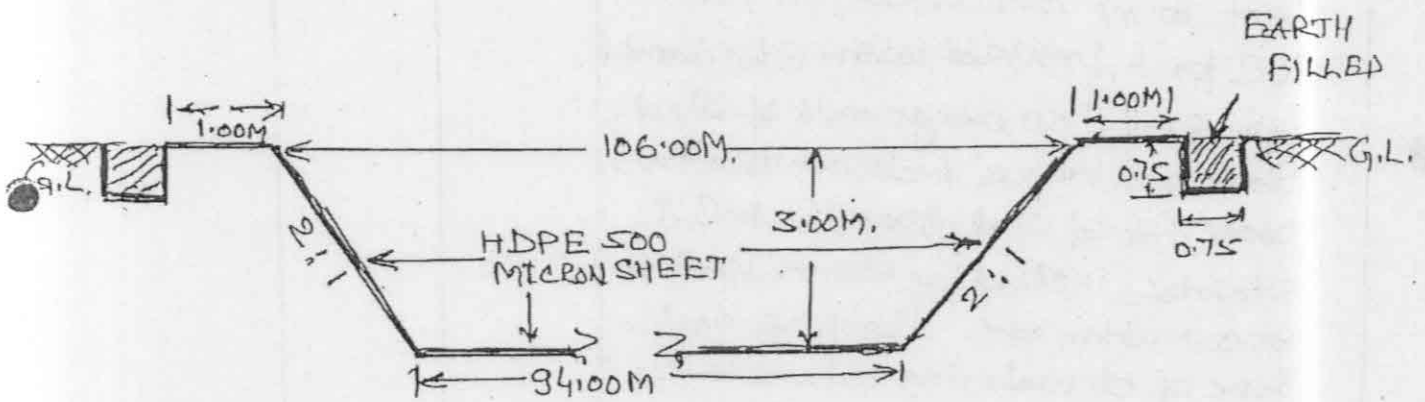 EARTH
FILLED
1.00M
1.00M
106.00M.
G.L.
G.L.
0.75
0.75
3.00M.
2:1
2:1
HDPE 500
MICRON SHEET
94.00M